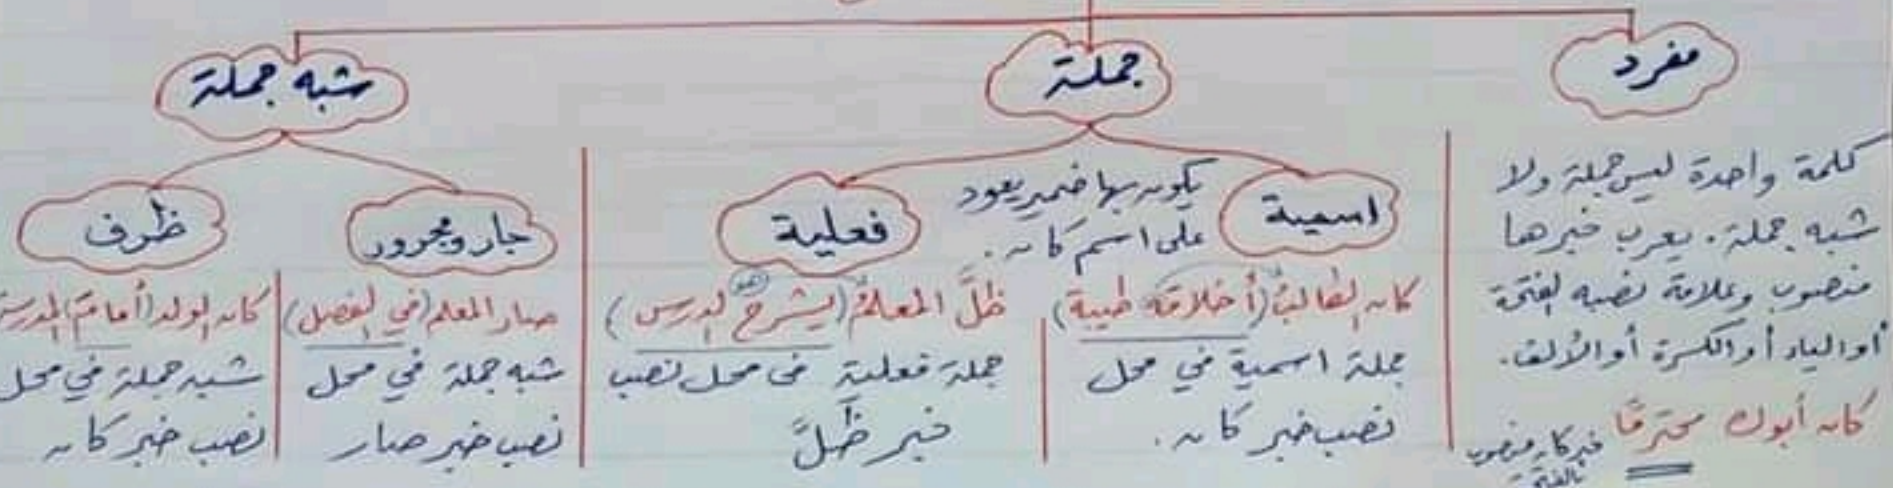 مفرد
جملة
شبه جملة
كلمة واحدة ليس جملة ولا
شبه جملة. يعرب خبرها
منصوب وعلامة نصبه الفتحة
أو الياء أو الكسرة أو الألف.
كان أبوك محترمًا
خبر كان منصوب
بالفتحة
اسمية
يكون بها ضمير يعود
على اسم كان.
فعلية
كان الطالبُ (أخلاقه طيبة)
جملة اسمية في محل
نصب خبر كان.
ظلَّ المعلمُ (يشرح الدرس)
هو
جملة فعلية في محل نصب
خبر ظلَّ
جار ومجرور
ظرف
صار المعلم (في الفصل)
شبه جملة في محل
نصب خبر صار
كان الولد (أمامَ) المدرسة
شبه جملة في محل
نصب خبر كان